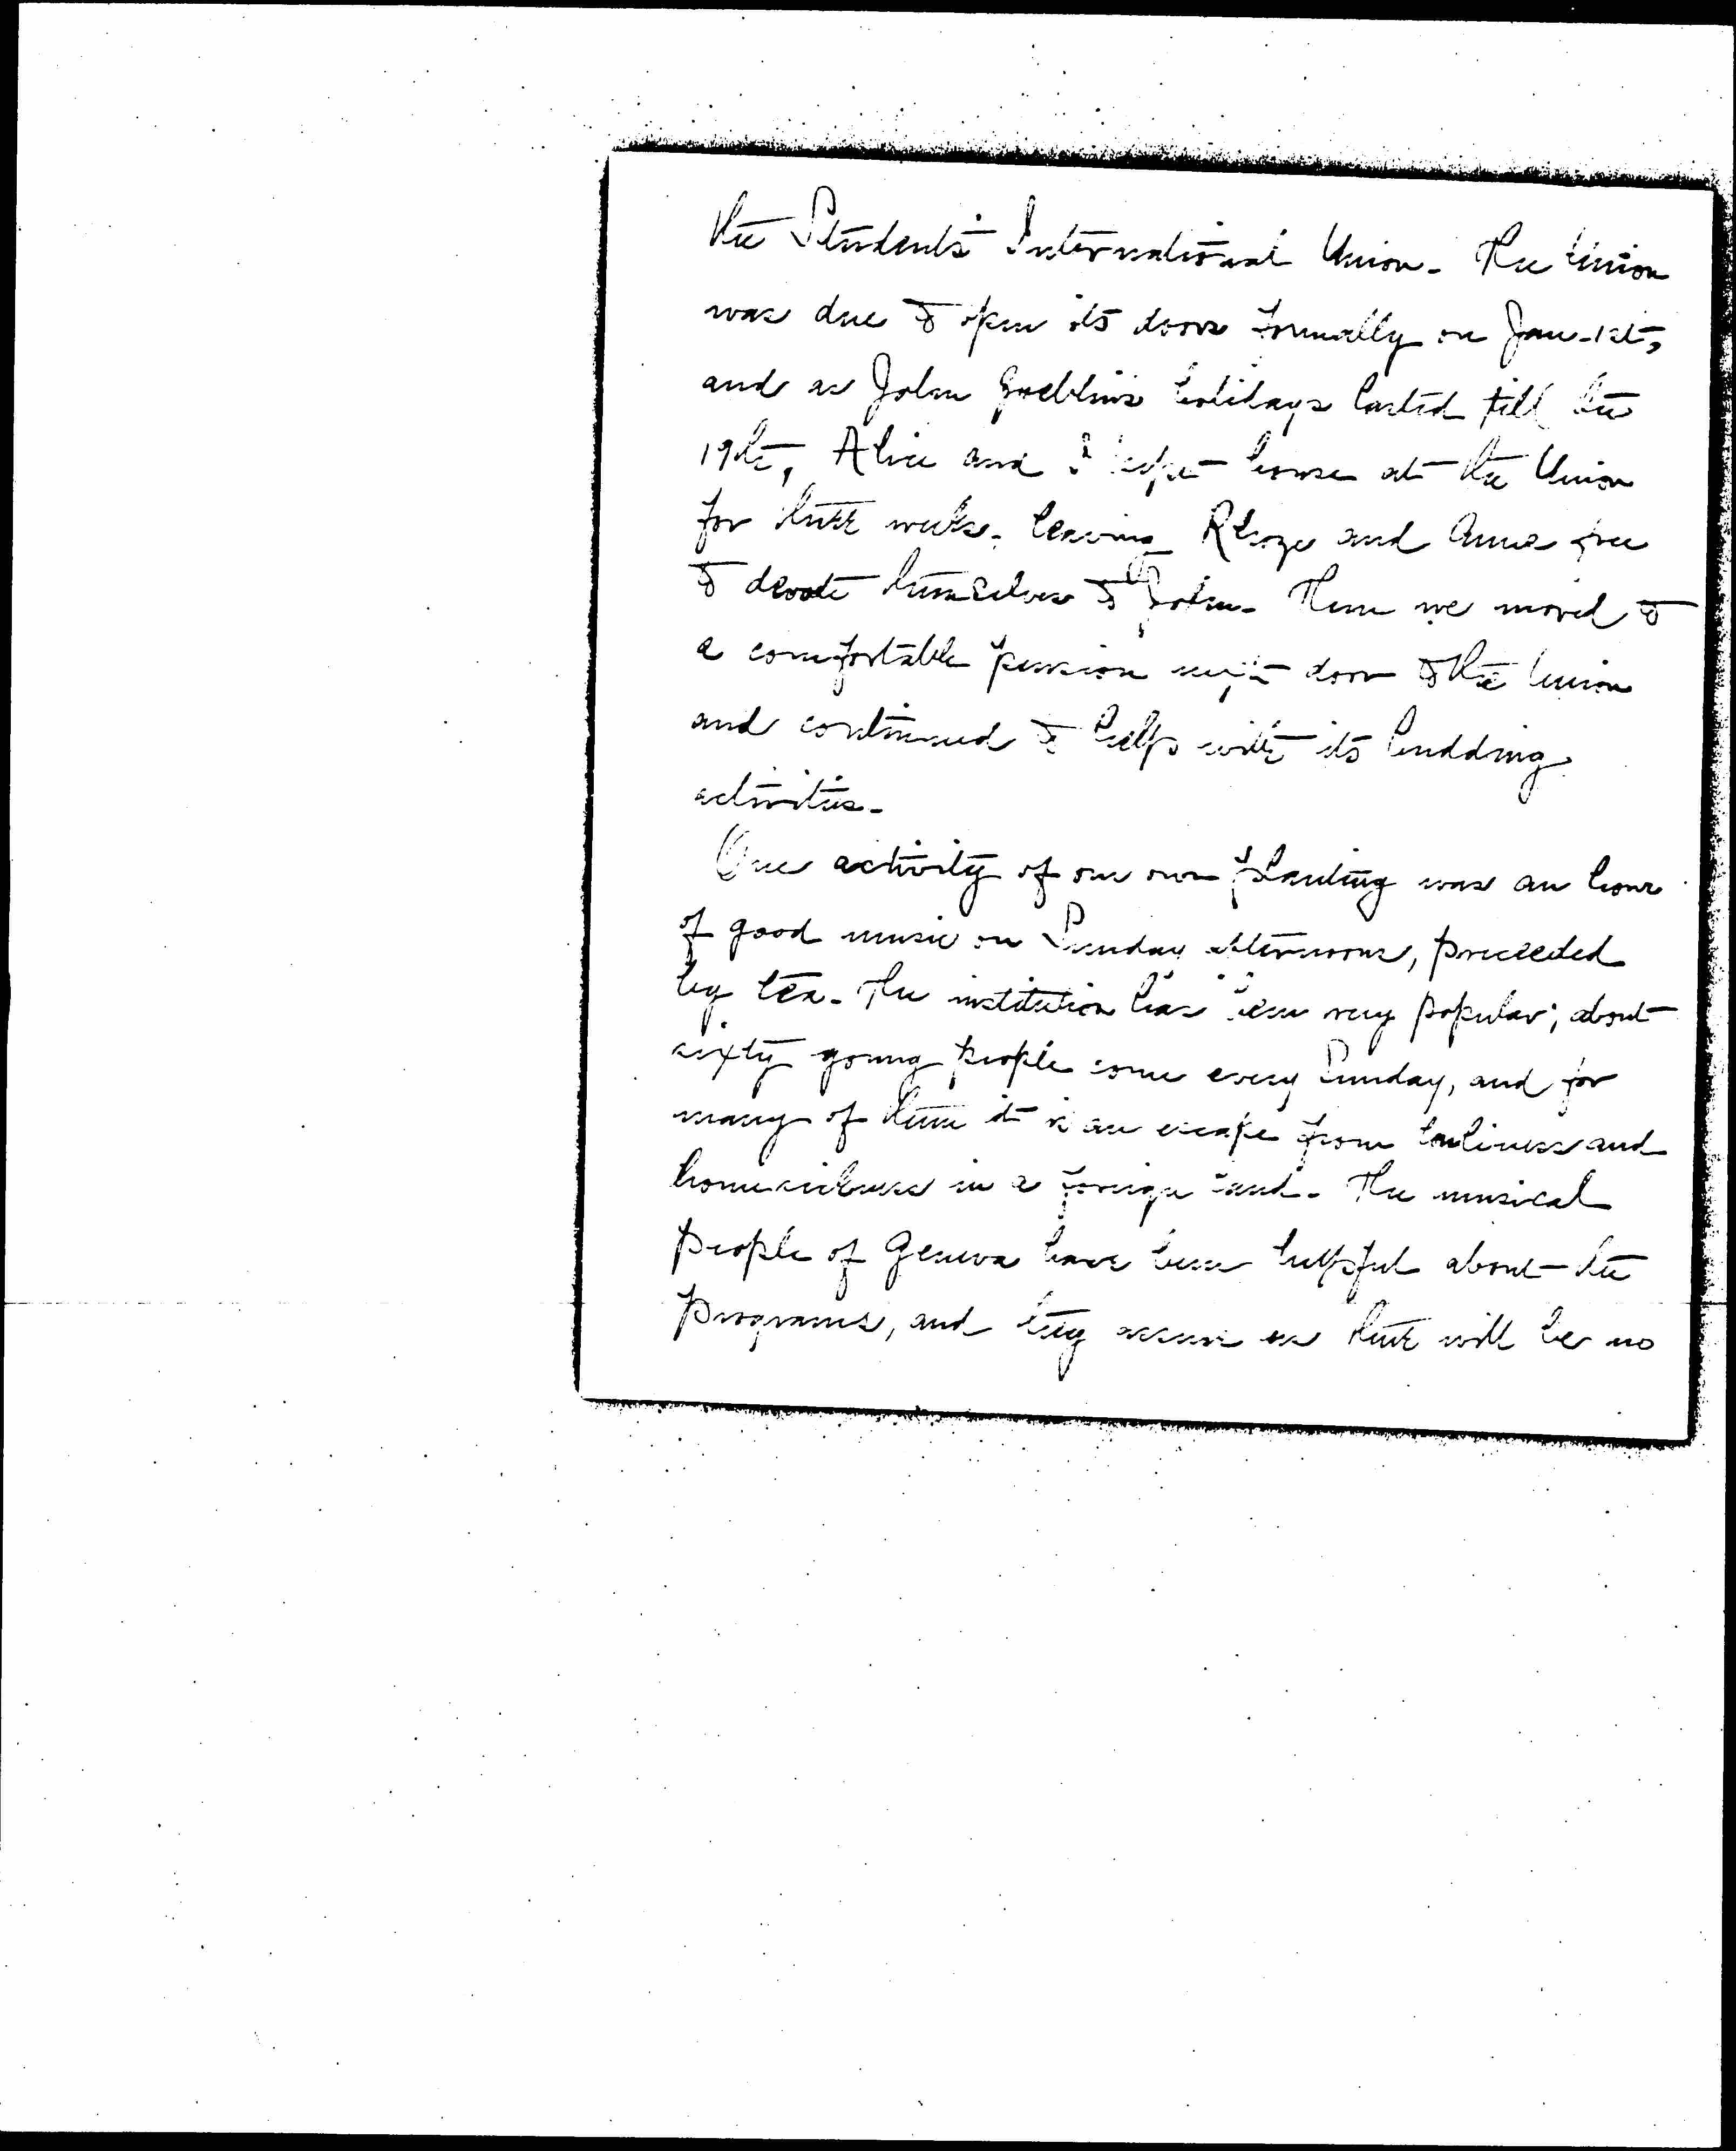 the Students' International Union. The Union
was due to open its doors formally on Jan. 1st,
and as John holidays lasted till the
19th, Alice and I kept house at the Union
for three weeks, leaving and Anna free
to devote themselves to John. Then we moved to
a comfortable pension next door to the Union
and continued to help with its budding
activities.
One activity of our own planting was an hour
of good music on Sunday afternoons, preceeded
by tea. The institution has been very popular; about
sixty young people come every Sunday, and for
many of them it is an escape from lonliness and
homesickness in a foreign land. The musical
people of Geneva have been helpful about the
programs, and they assure us there will be no